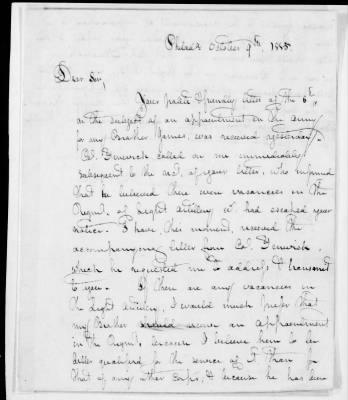 Philad.a October 9th, 1825
Dear Sir,
Your polite & friendly letter of the 6th,
on the subject of an appointment in the Army
for my Brother James, was received yesterday.
Col. Fenwick called on me immediately
subsequent to the rect. of your letter, who informed
that he believed there were vacancies in the
Regmt. of Light artillery, wh. had escaped your
notice. I have this moment, received the
accompanying letter from Col. Fenwick,
which he requested me to address & transmit
to you. If there are any vacancies in
the Light Artillery, I would much prefer that
my Brother should receive an appointment
in that Regmt., because I believe him to be
better qualified for the service of it than for
that of any other Corps, & because he has been